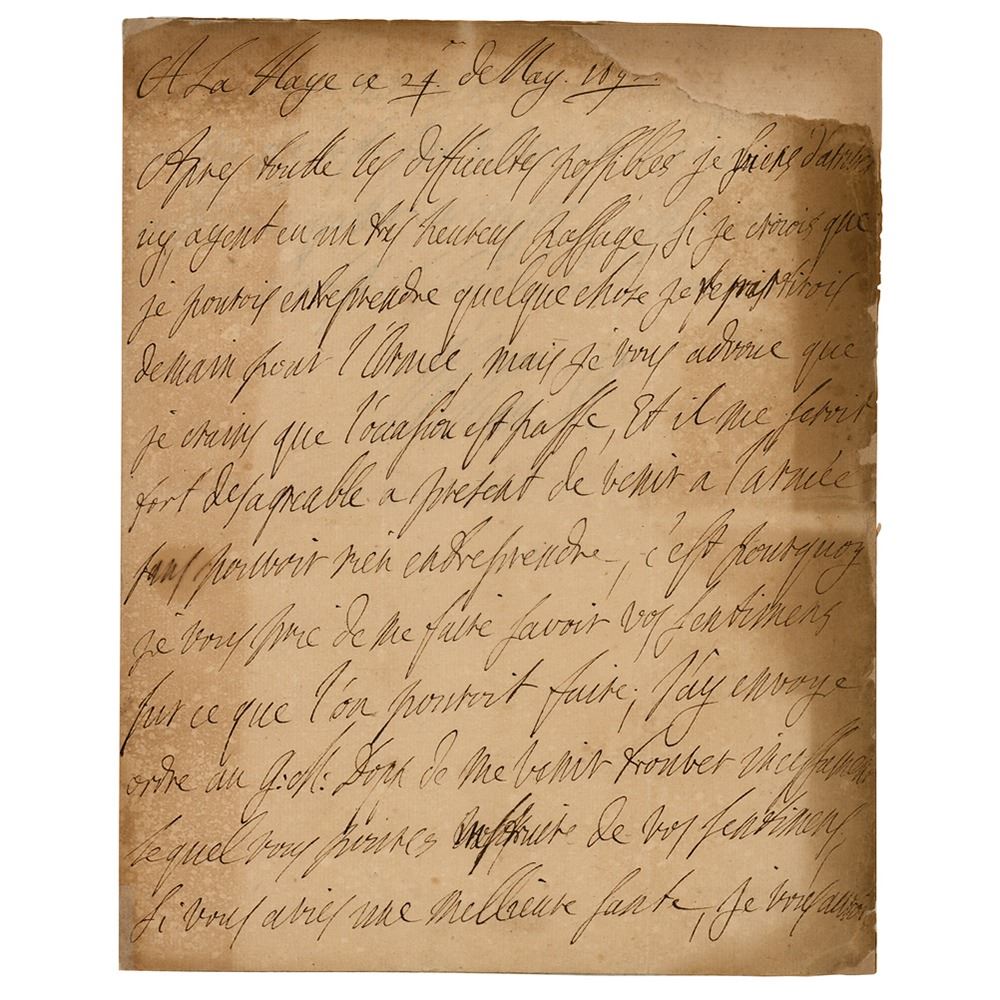 A La Haye ce 24me de May. 169
Apres toutte les difficultes possibles je viens d'arriver
icy, ayent eu un tres heureus passage, si je croiois que
je pourois entreprendre quelque chose je
demain pour l'Armée, mais je vous advoue que
je crains que l'occasion est passe, Et il me seroit
fort desagreable a present de venir a l'armée
sans pouvoir rien entreprendre, c'est pourquoy
je vous prie de me faire savoir vos sentimens
sur ce que l'on pouroit faire; J'ay envoye
ordre au G: M: Dopf de me venir trouver incessament
lequel vous poures instruire de vos sentimens,
si vous avies une mellieure sante, je vous aurois